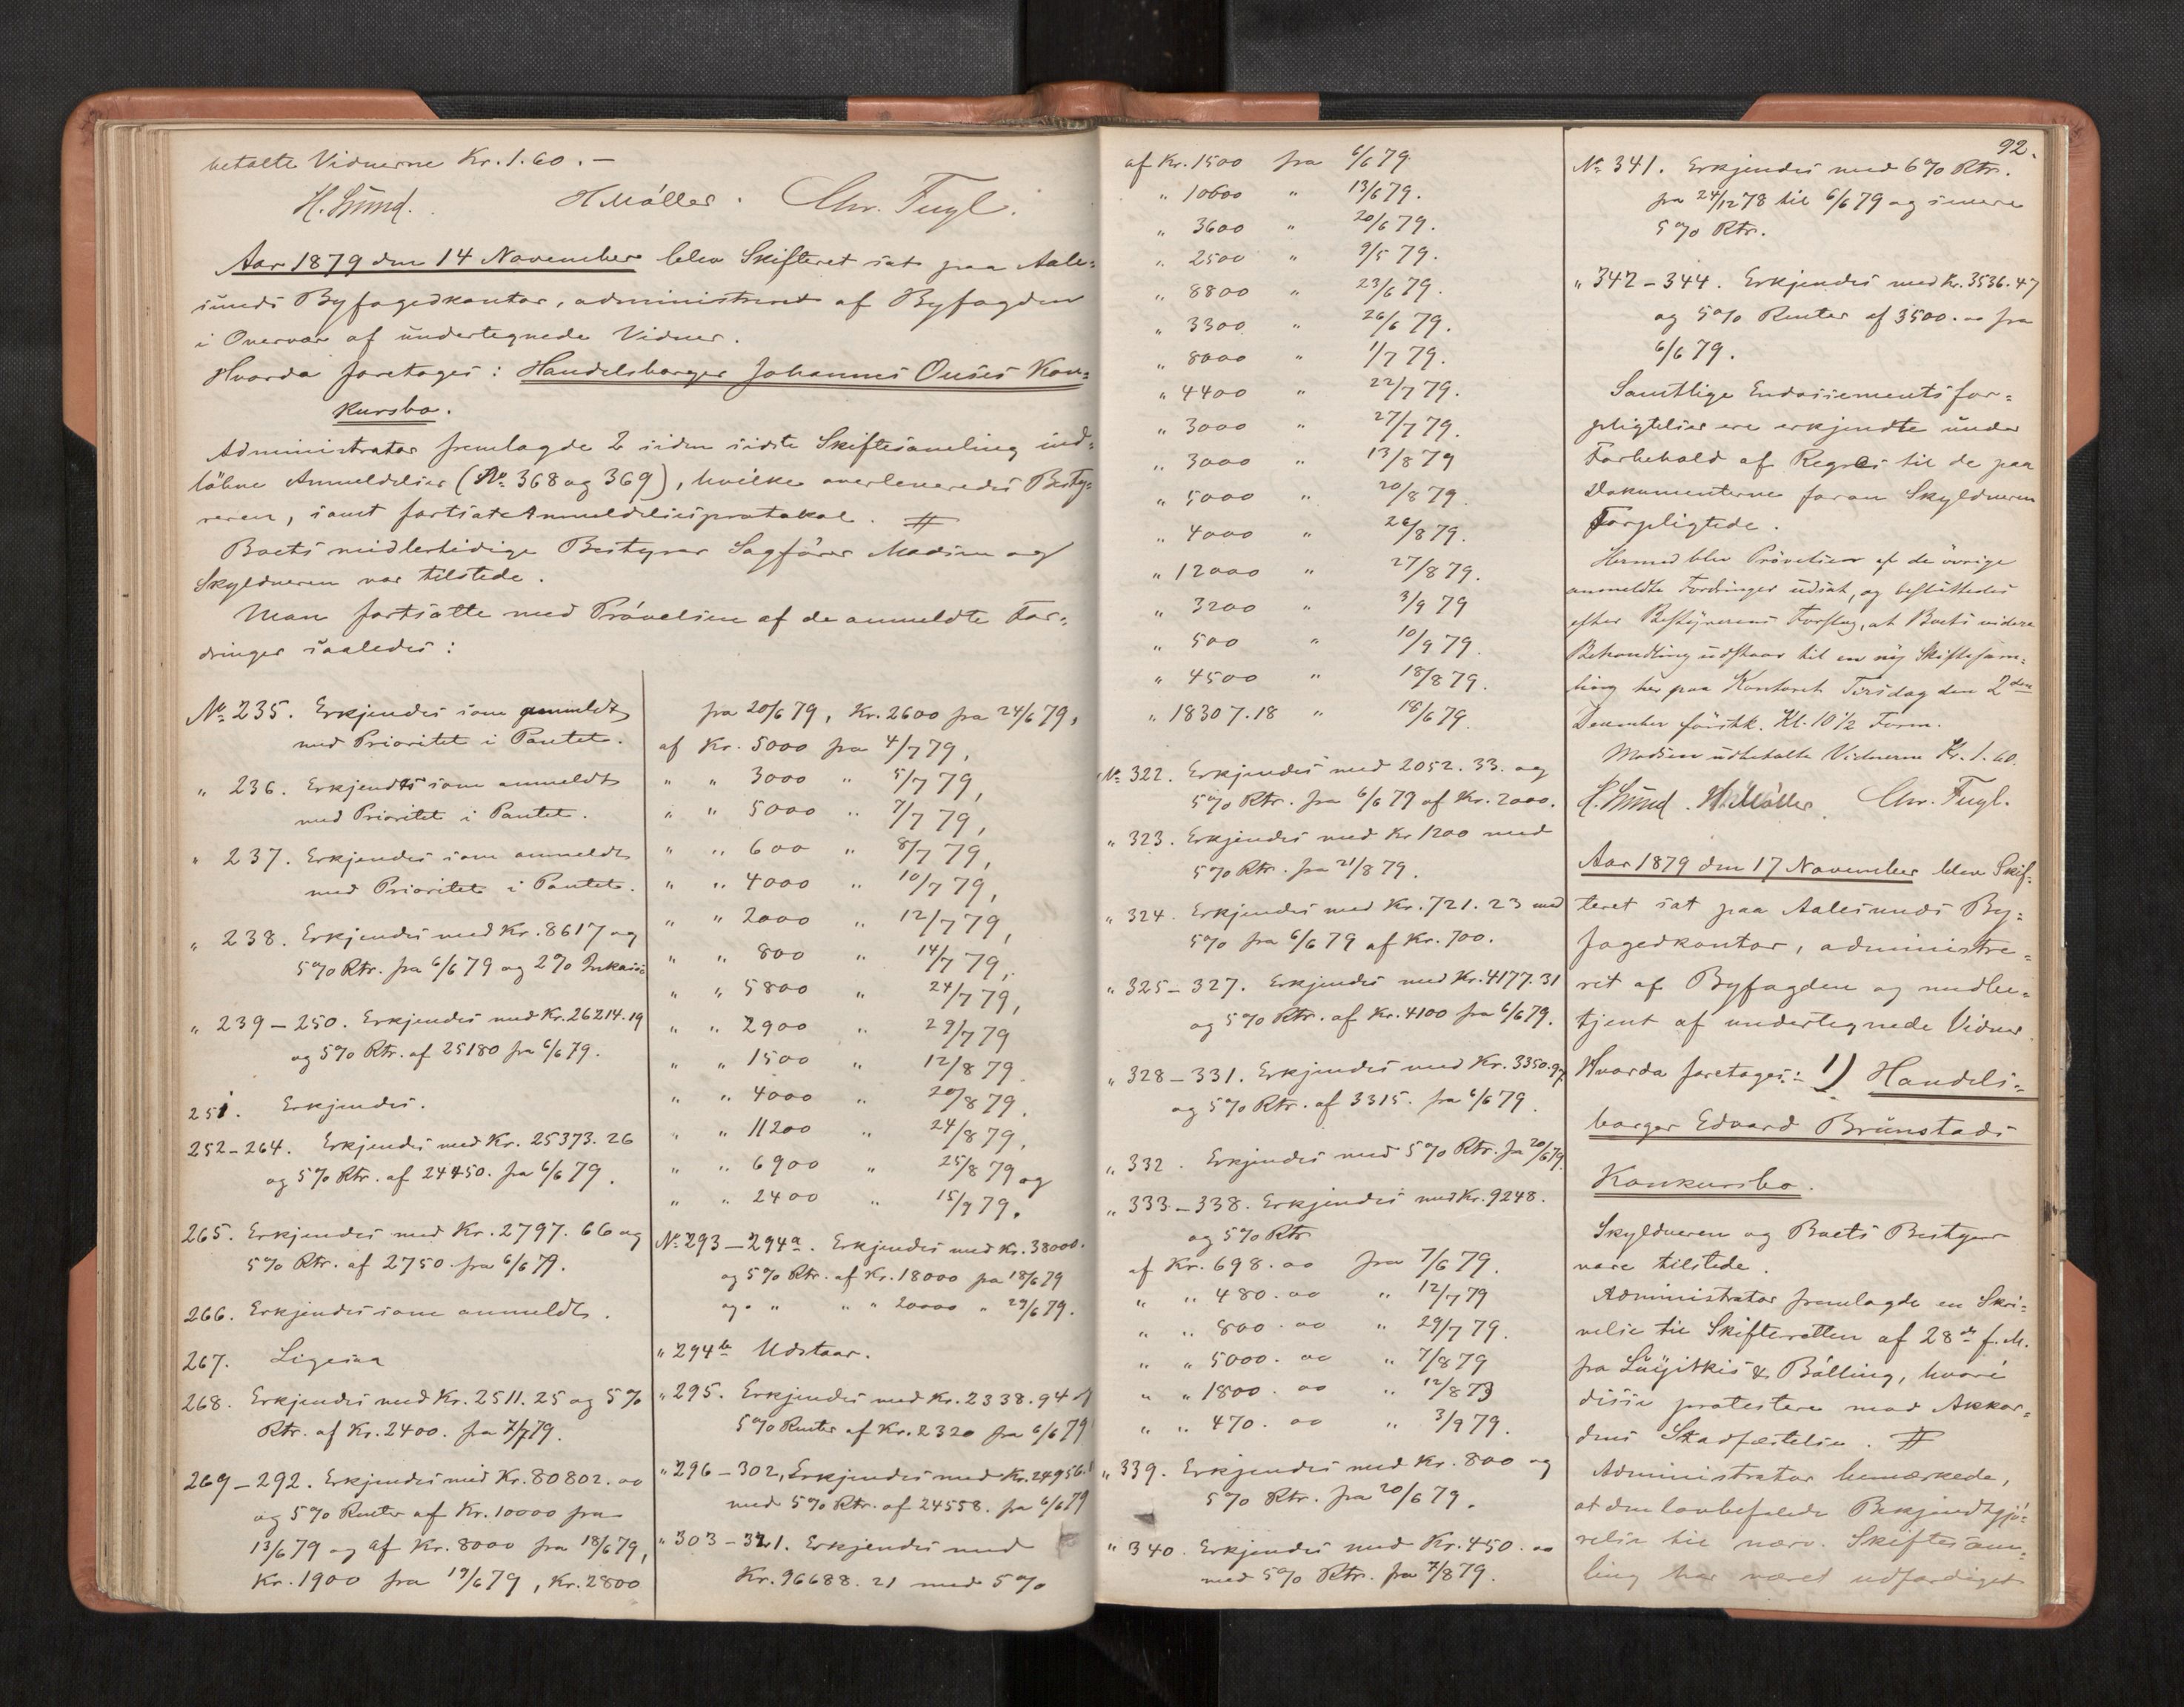 betalte Vidnerne Kr. 1.60. –
H. Lund. H Møller. Chr. Fugl.
Aar 1879 den 14 November blev Skifteret sat paa Aale-
sunds Byfogedkontor, administreret af Byfogden
i Overvær af undertegnede Vidner.
Hvorda foretoges: Handelsborger Johannes Ouses Kon-
kursbo.
Administrator fremlagde 2 siden sidste Skiftesamling ind-
løbne Anmeldelser (No 368 og 369), hvilke overleveredes Besty-
reren, samt fortsat Anmeldelsesprotokol. #
Boets midlertidige Bestyrer Sagfører Madsen og
Skyldneren var tilstede.
Man fortsatte med Prøvelsen af de anmeldte For-
dringer saaledes:
No 235. Erkjendes som anmeldt
med Prioritet i Pantet.
" 236. Erkjendes som anmeldt
med Prioritet i Pantet.
" 237. Erkjendes som anmeldt
med Prioritet i Pantet.
" 238. Erkjendes med Kr. 8617 og
5% Rtr. fra 6/6 79 og 2% Inkasso
" 239 – 250. Erkjendes med Kr. 26214.19
og 5% Rtr. af 25180 fra 6/6 79.
251. Erkjendes.
252–264. Erkjendes med Kr. 25373.26
og 5% Rtr. af 24450. fra 6/6 79.
265. Erkjendes med Kr. 2797.66 og
5% Rtr. af 2750 fra 6/6 79.
266. Erkjendes som anmeldt.
267. Ligesaa
268. Erkjendes med Kr. 2511.25 og 5%
Rtr. af Kr. 2400. fra 7/7 79.
269 – 292. Erkjendes med Kr. 80802.00
og 5% Renter af Kr. 10000 fra
13/6 79 og af Kr. 8000 fra 18/6 79,
Kr. 1900 fra 19/6 79, Kr. 2800
fra 20/6 79, Kr. 2600 fra 24/6 79,
af Kr. 5000 fra 4/7 79,
" " 3000 " 5/7 79,
" " 5000 " 7/7 79,
" " 600 " 8/7 79,
" " 4000 " 10/7 79,
" " 2000 " 12/7 79,
" " 800 " 14/7 79,
" " 5800 " 24/7 79,
" " 2900 " 29/7 79
" " 1500 " 12/8 79
" " 4000 " 20/8 79,
" " 11200 " 24/8 79,
" " 6900 " 25/8 79 og
" " 2400 " 15/9 79.
No 293 – 294a. Erkjendes med Kr. 38000.
og 5% Rtr. af Kr. 18000 fra 18/6 79
og " " " 20000 " 29/6 79.
" 294b Udstaar.
" 295. Erkjendes med Kr. 2338.94 og
5% Renter af Kr. 2320 fra 6/6 79
" 296 – 302, Erkjendes med Kr. 24956.
med 5% Rtr. af 24558. fra 6/6 79
" 303 – 321. Erkjendes med
Kr. 96688.21 med 5%
af Kr. 1500 fra 6/6 79.
" 10600 " 13/6 79.
" 3600 " 20/6 79.
" 2500 " 9/5 79.
" 8800 " 23/6 79.
" 3300 " 26/6 79.
" 8000 " 1/7 79.
" 4400 " 22/7 79.
" 3000 " 27/7 79.
" 3000 " 13/8 79
" 5000 " 20/8 79.
" 4000 " 26/8 79.
" 12000 " 27/8 79.
" 3200 " 3/9 79
" 500 " 10/9 79.
" 4500 " 18/8 79.
" 18307.18 " 18/6 79.
No 322. Erkjendes med 2052.33. og
5% Rtr. fra 6/6 79 af Kr. 2000.
" 323. Erkjendes med Kr 1200 med
5% Rtr. fra 21/8 79.
" 324. Erkjendes med Kr. 721.23 med
5% fra 6/6 79 af Kr. 700.
" 325 – 327. Erkjendes med Kr. 4177.31
og 5% Rtr. af Kr. 4100 fra 6/6 79.
" 328 – 331. Erkjendes med Kr. 3350.97
og 5% Rtr. af 3315. fra 6/6 79.
" 332. Erkjendes med 5% Rtr. fra 20/6 79.
" 333 – 338. Erkjendes med Kr. 9248.
og 5% Rtr
af Kr. 698.00 fra 7/6 79.
" " 480.00 " 12/7 79
" " 800.00 " 29/7 79.
" " 5000.00 " 7/8 79
" " 1800.00 " 12/8 79
" " 470.00 " 3/9 79.
" 339. Erkjendes med Kr. 800 og
5% Rtr. fra 20/6 79.
" 340. Erkjendes med Kr. 450.00
med 5% Rtr. fra 7/8 79.
92.
No 341. Erkjendes med 6% Rtr.
fra 24/12 78 til 6/6 79 og senere
5% Rtr.
" 342 – 344. Erkjendes med Kr. 3536.47
og 5% Renter af 3500.00 fra
6/6 79.
Samtlige Endossementsfor-
pligtelser ere erkjendte under
Forbehold af Regres til de paa
Dokumenterne foran Skyldneren
Forpligtede.
Hermed blev Prøvelsen af de øvrige
anmeldte Fordringer udsat, og besluttedes
efter Bestyrerens Forslag, at Boets videre
Behandling udstaar til en ny Skiftesam-
ling her paa Kontoret Tirsdag den 2den
December førstk. Kl. 10 1/2 Form.
Madsen udbetalte Vidnerne Kr. 1.60.
H. Lund. H Møller. Chr. Fugl.
Aar 1879 den 17 November blev Skif-
teret sat paa Aalesunds By-
fogedkontor, administre-
ret af Byfogden og medbe-
tjent af undertegnede Vidner.
Hvorda foretoges: 1) Handels-
borger Edvard Brunstads
Konkursbo.
Skyldneren og Boets Bestyrer
vare tilstede.
Administrator fremlagde en Skri-
velse til Skifteretten af 28de f. M.
fra & Bølling, hvori
disse protestere mod Akkor-
dens Stadfæstelse. #
Administrator bemærkede,
at den lovbefalede Bekjendtgjø-
relse til nærv. Skiftesam-
ling har været udfærdiget